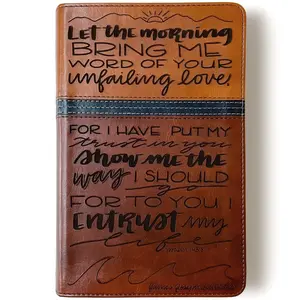 Let the morning
BRING ME
WORD OF YOUR
unfailing love!
FOR I HAVE PUT MY
trust in you
show me the
way I SHOULD
go
FOR TO YOU I
ENTRUST my
life